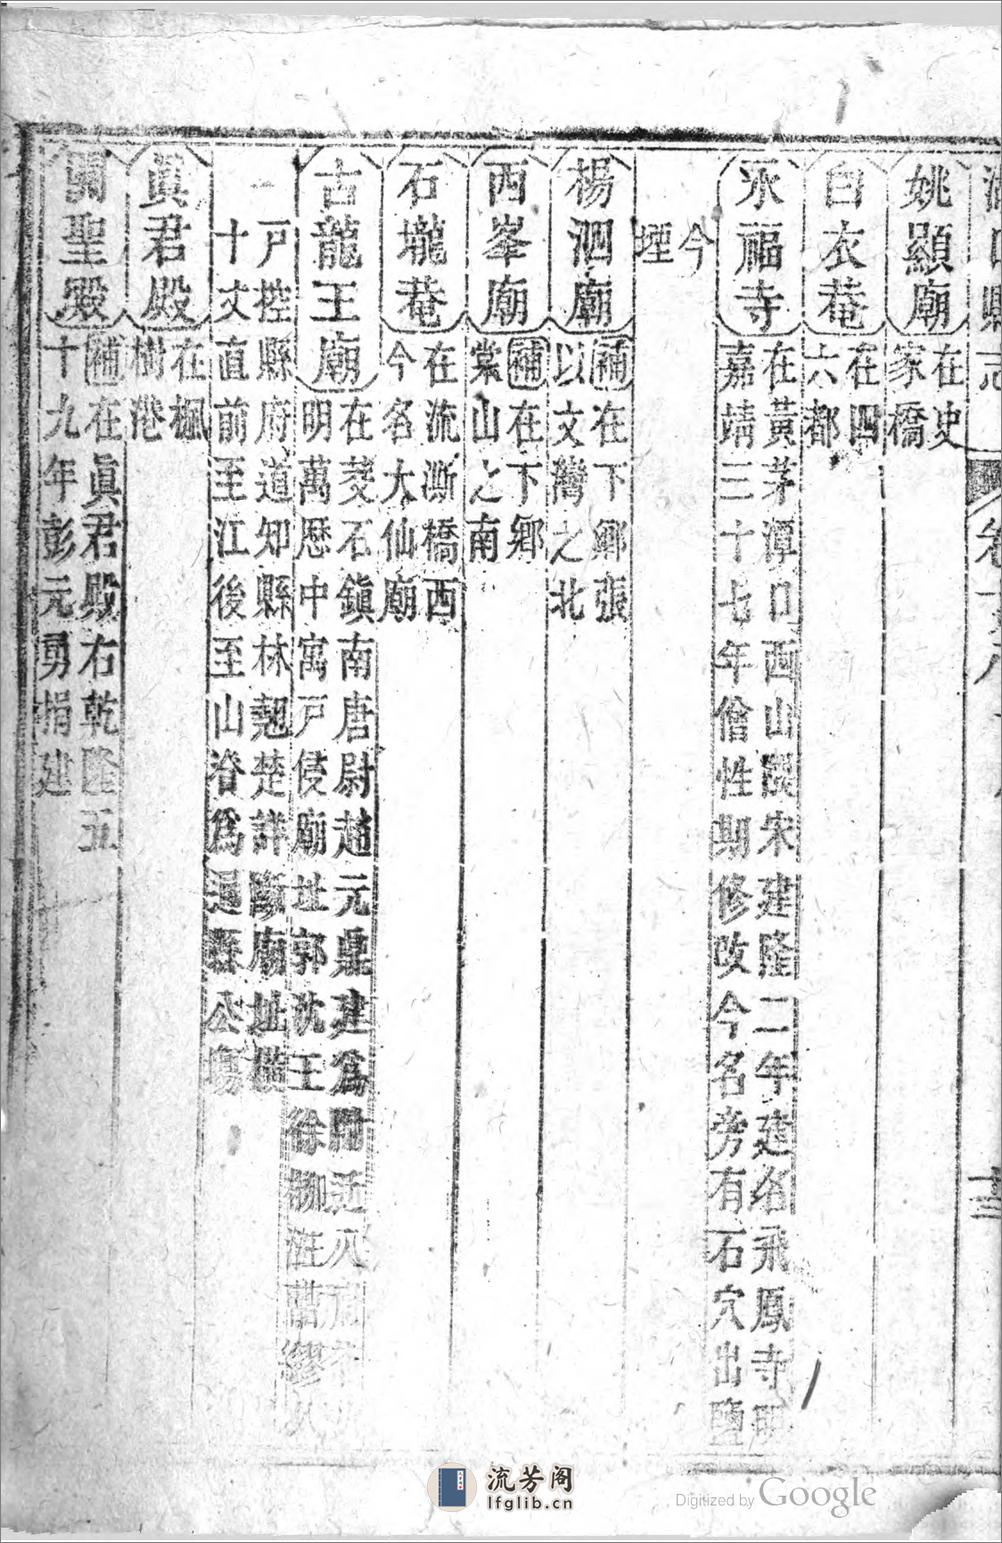 口縣志
卷
十三
姚顯廟在史
家橋
白衣菴在四
六都
永福寺在黃茅潭口西山宋建隆二年建名飛鳳寺明
嘉靖三十七年僧性期修改今名旁有石穴出鹽
今
堙
楊泗廟補在下鄉張
以文灣之北
西峯廟補在下鄉
棠山之南
石壠菴在流澌橋西
今名大仙廟
古龍王廟在茭石鎮南唐尉趙元鼎建爲附近八
明萬歷中寓戸侵廟址郭沈王徐柳汪繆八
戸控縣府道知縣林翹楚詳斷廟址橫
十丈直前至江後至山脊爲通縣公
眞君殿在楓
樹港
關聖殿補在眞君殿右乾隆五
十九年彭元勇捐建
流芳阁
lfglib.cn
Digitized by Google